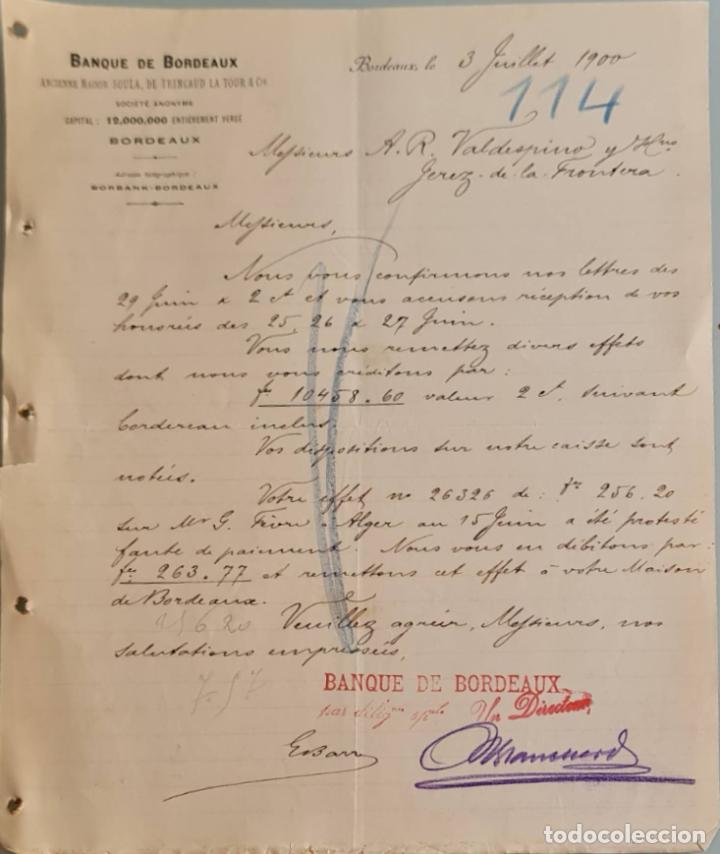 BANQUE DE BORDEAUX
ANCIENNE MAISON SOULA, DE TRINCAUD LA TOUR & Cie
SOCIÉTÉ ANONYME
CAPITAL : 12,000,000 ENTIÈREMENT VERSÉ
BORDEAUX
Adresse télégraphique :
BORBANK-BORDEAUX
Bordeaux, le 3 Juillet 1900
114
Messieurs A. R. Valdespino y Hno
Jerez-de-la-Frontera
Messieurs,
Nous vous confirmons nos lettres des
29 Juin & 2 ct et vous accusons réception de vos
honorées des 25, 26 & 27 Juin.
Vous nous remettez divers effets
dont nous vous créditons par :
fr 10458.60 valeur 2 ct, suivant
bordereau inclus.
Vos dispositions sur notre caisse sont
notées.
Votre effet no 26326 de : fr 256.20
sur Mr G. Alger au 15 Juin a été protesté
faute de paiement. Nous vous en débitons par :
fr 263.77 et remettons cet effet à votre Maison
de Bordeaux.
256 20
Veuillez agréer, Messieurs, nos
salutations empressées,
7.57
BANQUE DE BORDEAUX
par Un Directeur,
todocoleccion